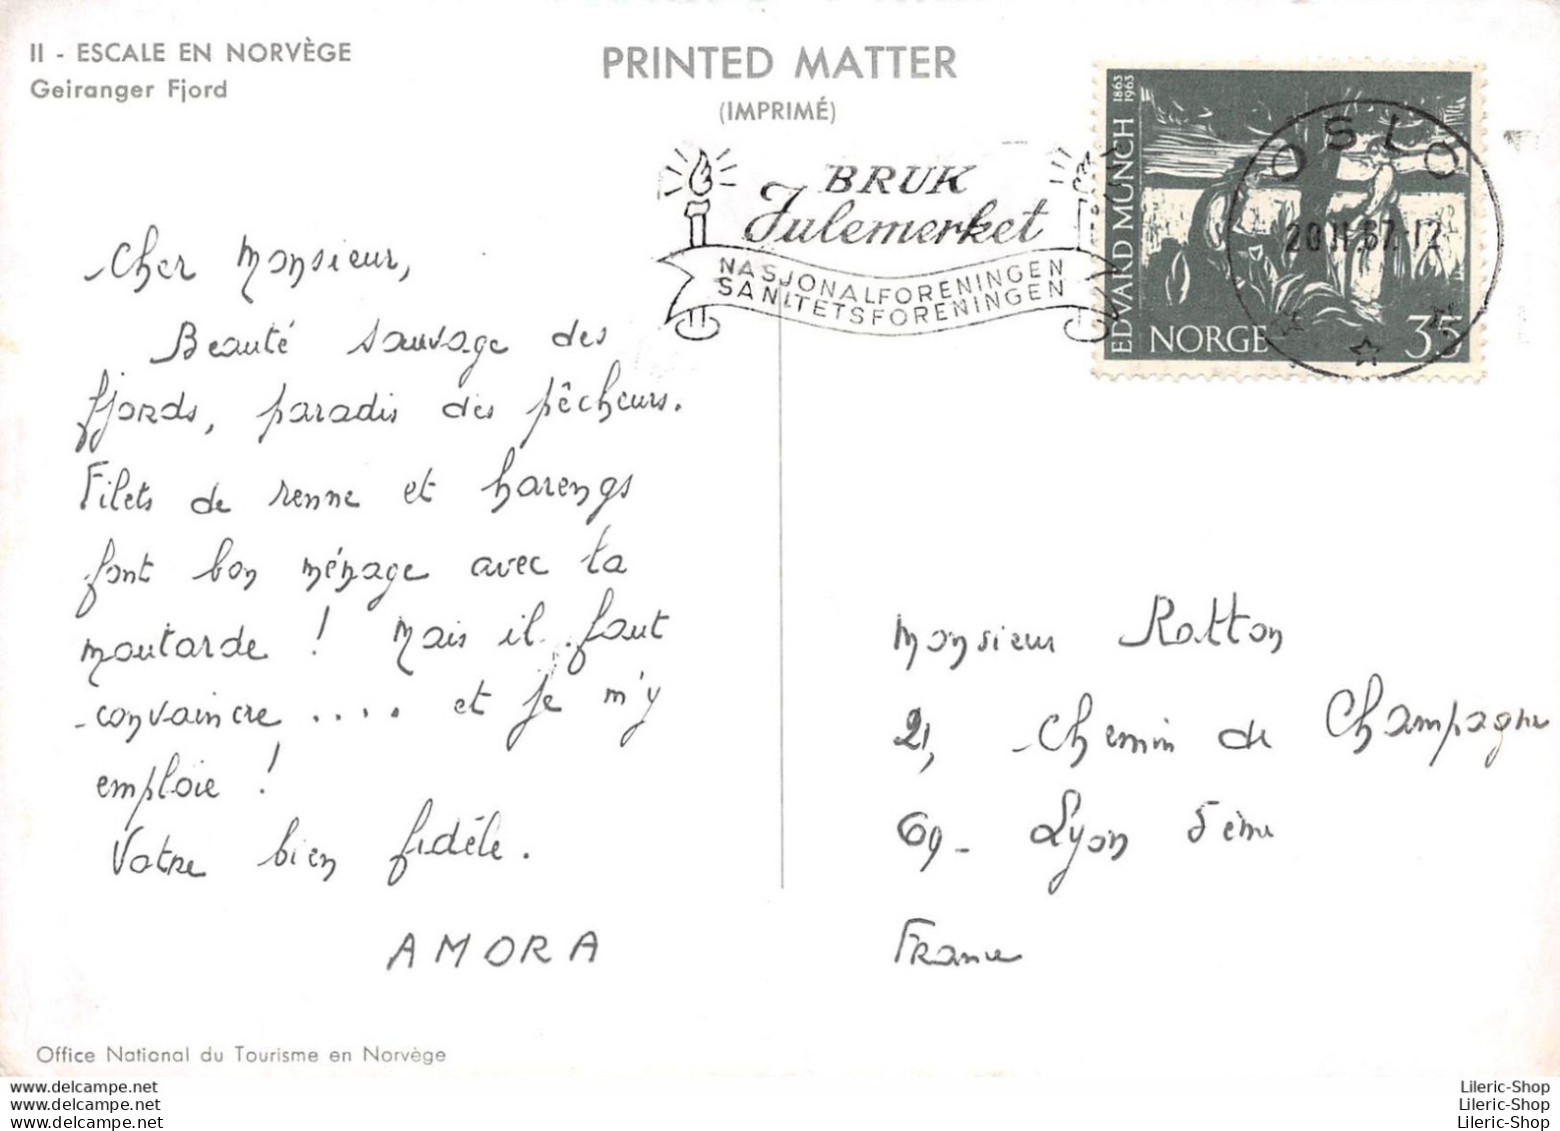 II - ESCALE EN NORVÈGE
Geiranger Fjord
PRINTED MATTER
(IMPRIMÉ)
BRUK
Julemerket
NASJONALFORENINGEN
SANITETSFORENINGEN
EDVARD MUNCH 1863 1963
NORGE 35
OSLO
20.11.67.-12
Cher Monsieur,
Beauté sauvage des
fjords, paradis des pêcheurs.
Filets de renne et harengs
font bon ménage avec la
moutarde ! Mais il faut
convaincre .... et je m'y
emploie !
Votre bien fidèle.
AMORA
Monsieur Rotton
21, Chemin de Champagne
69 - Lyon 5ème
France
Office National du Tourisme en Norvège
www.delcampe.net
www.delcampe.net
www.delcampe.net
Lileric-Shop
Lileric-Shop
Lileric-Shop